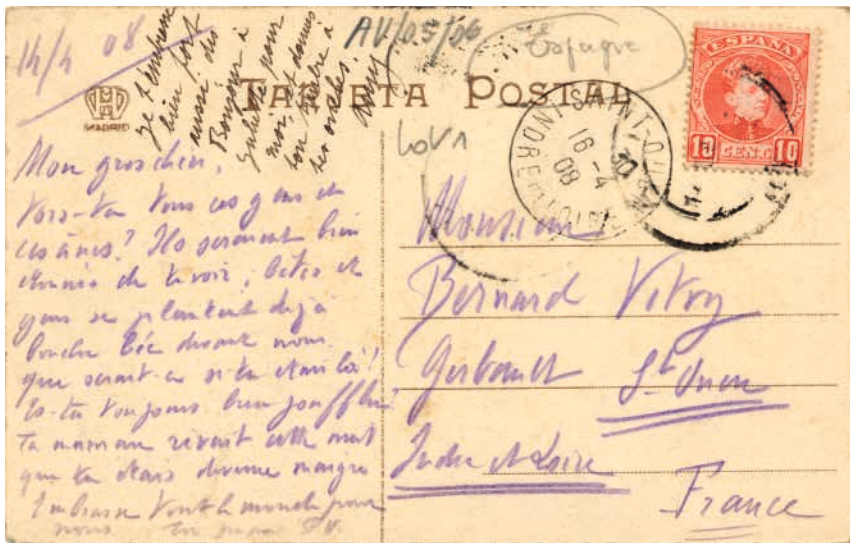 14/4 08
Je t'embrasse
bien fort
aussi. dis
Bonjour à
Juliette pour
moi, et donnes
ton à
tes oncles.
AV/05/06
Espagne
TARJETA POSTAL
MADRID
ESPAÑA
10 CENS 10
16-4
08
INDRE-ET-LOIRE
Mon gros chien,
Vois-tu tous ces gens et
ces ânes? Ils seraient bien
étonnés de te voir, bêtes et
gens se plantent déjà
bouche bée devant nous.
que serait-ce si tu étais là!
Es-tu toujours bien joufflu?
Ta maman rêvait cette nuit
que tu étais devenu maigre
Embrasse tout le monde pour
nous. Ton papa P.V.
Monsieur
Bernard Vitry
Gerbault St Ouen
Indre et Loire
France